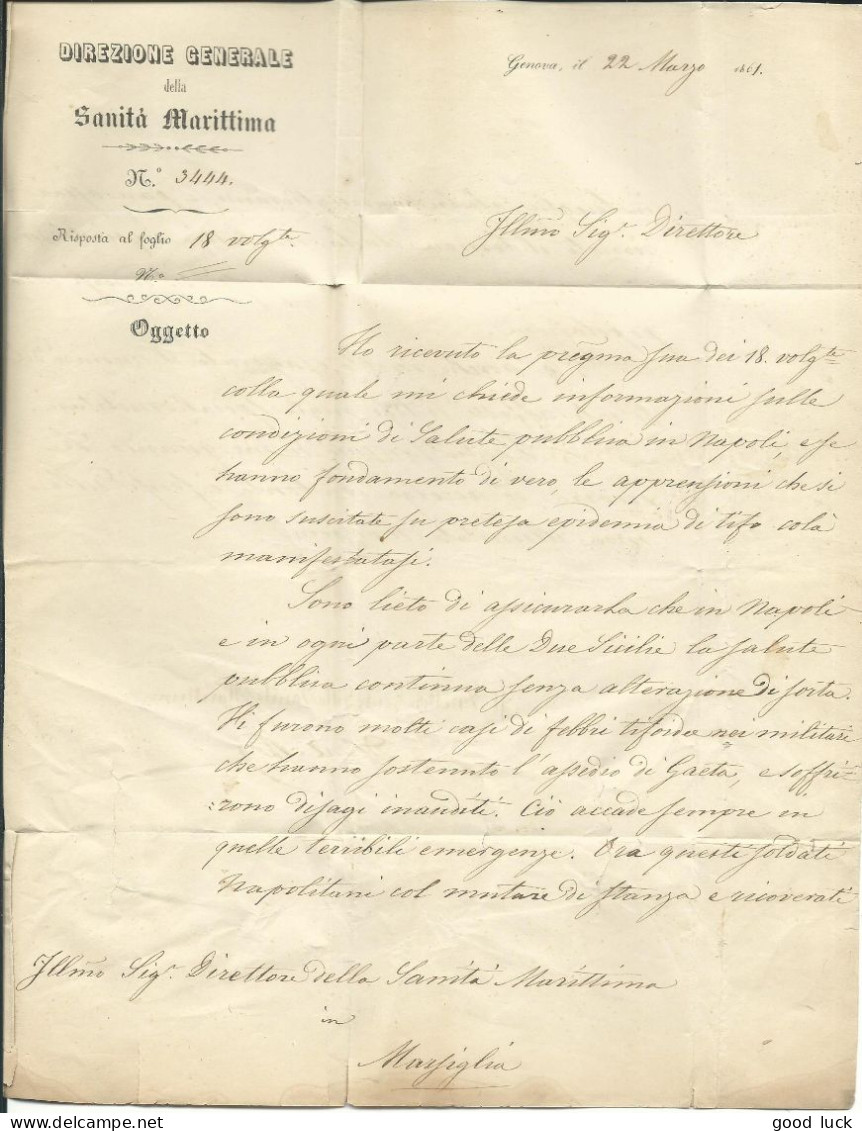 DIREZIONE GENERALE
della
Sanità Marittima
N.º 3444.
Risposta al foglio 18 volg.te
N.º
Oggetto
Genova, il 22 Marzo 1861.
Illmo Sig.r Direttore
Ho ricevuto la pregma sua dei 18. volg.te
colla quale mi chiede informazioni sulle
condizioni di Salute pubblica in Napoli, e se
hanno fondamento di vero, le apprensioni che si
sono suscitate su pretesa epidemia di tifo colà
manifestatasi.
Sono lieto di assicurarla che in Napoli
e in ogni parte delle Due Sicilie la salute
pubblica continua senza alterazione di sorta.
Vi furono molti casi di febbri tifoidea nei militari
che hanno sostenuto l'assedio di Gaeta, e soffri=
=rono disagi inauditi. Ciò accade sempre in
quelle terribili emergenze. Ora questi soldati
Napolitani col mutare di stanza e ricoverati
Illmo Sig.r Direttore della Sanità Marittima
in
Marsiglia
good luck